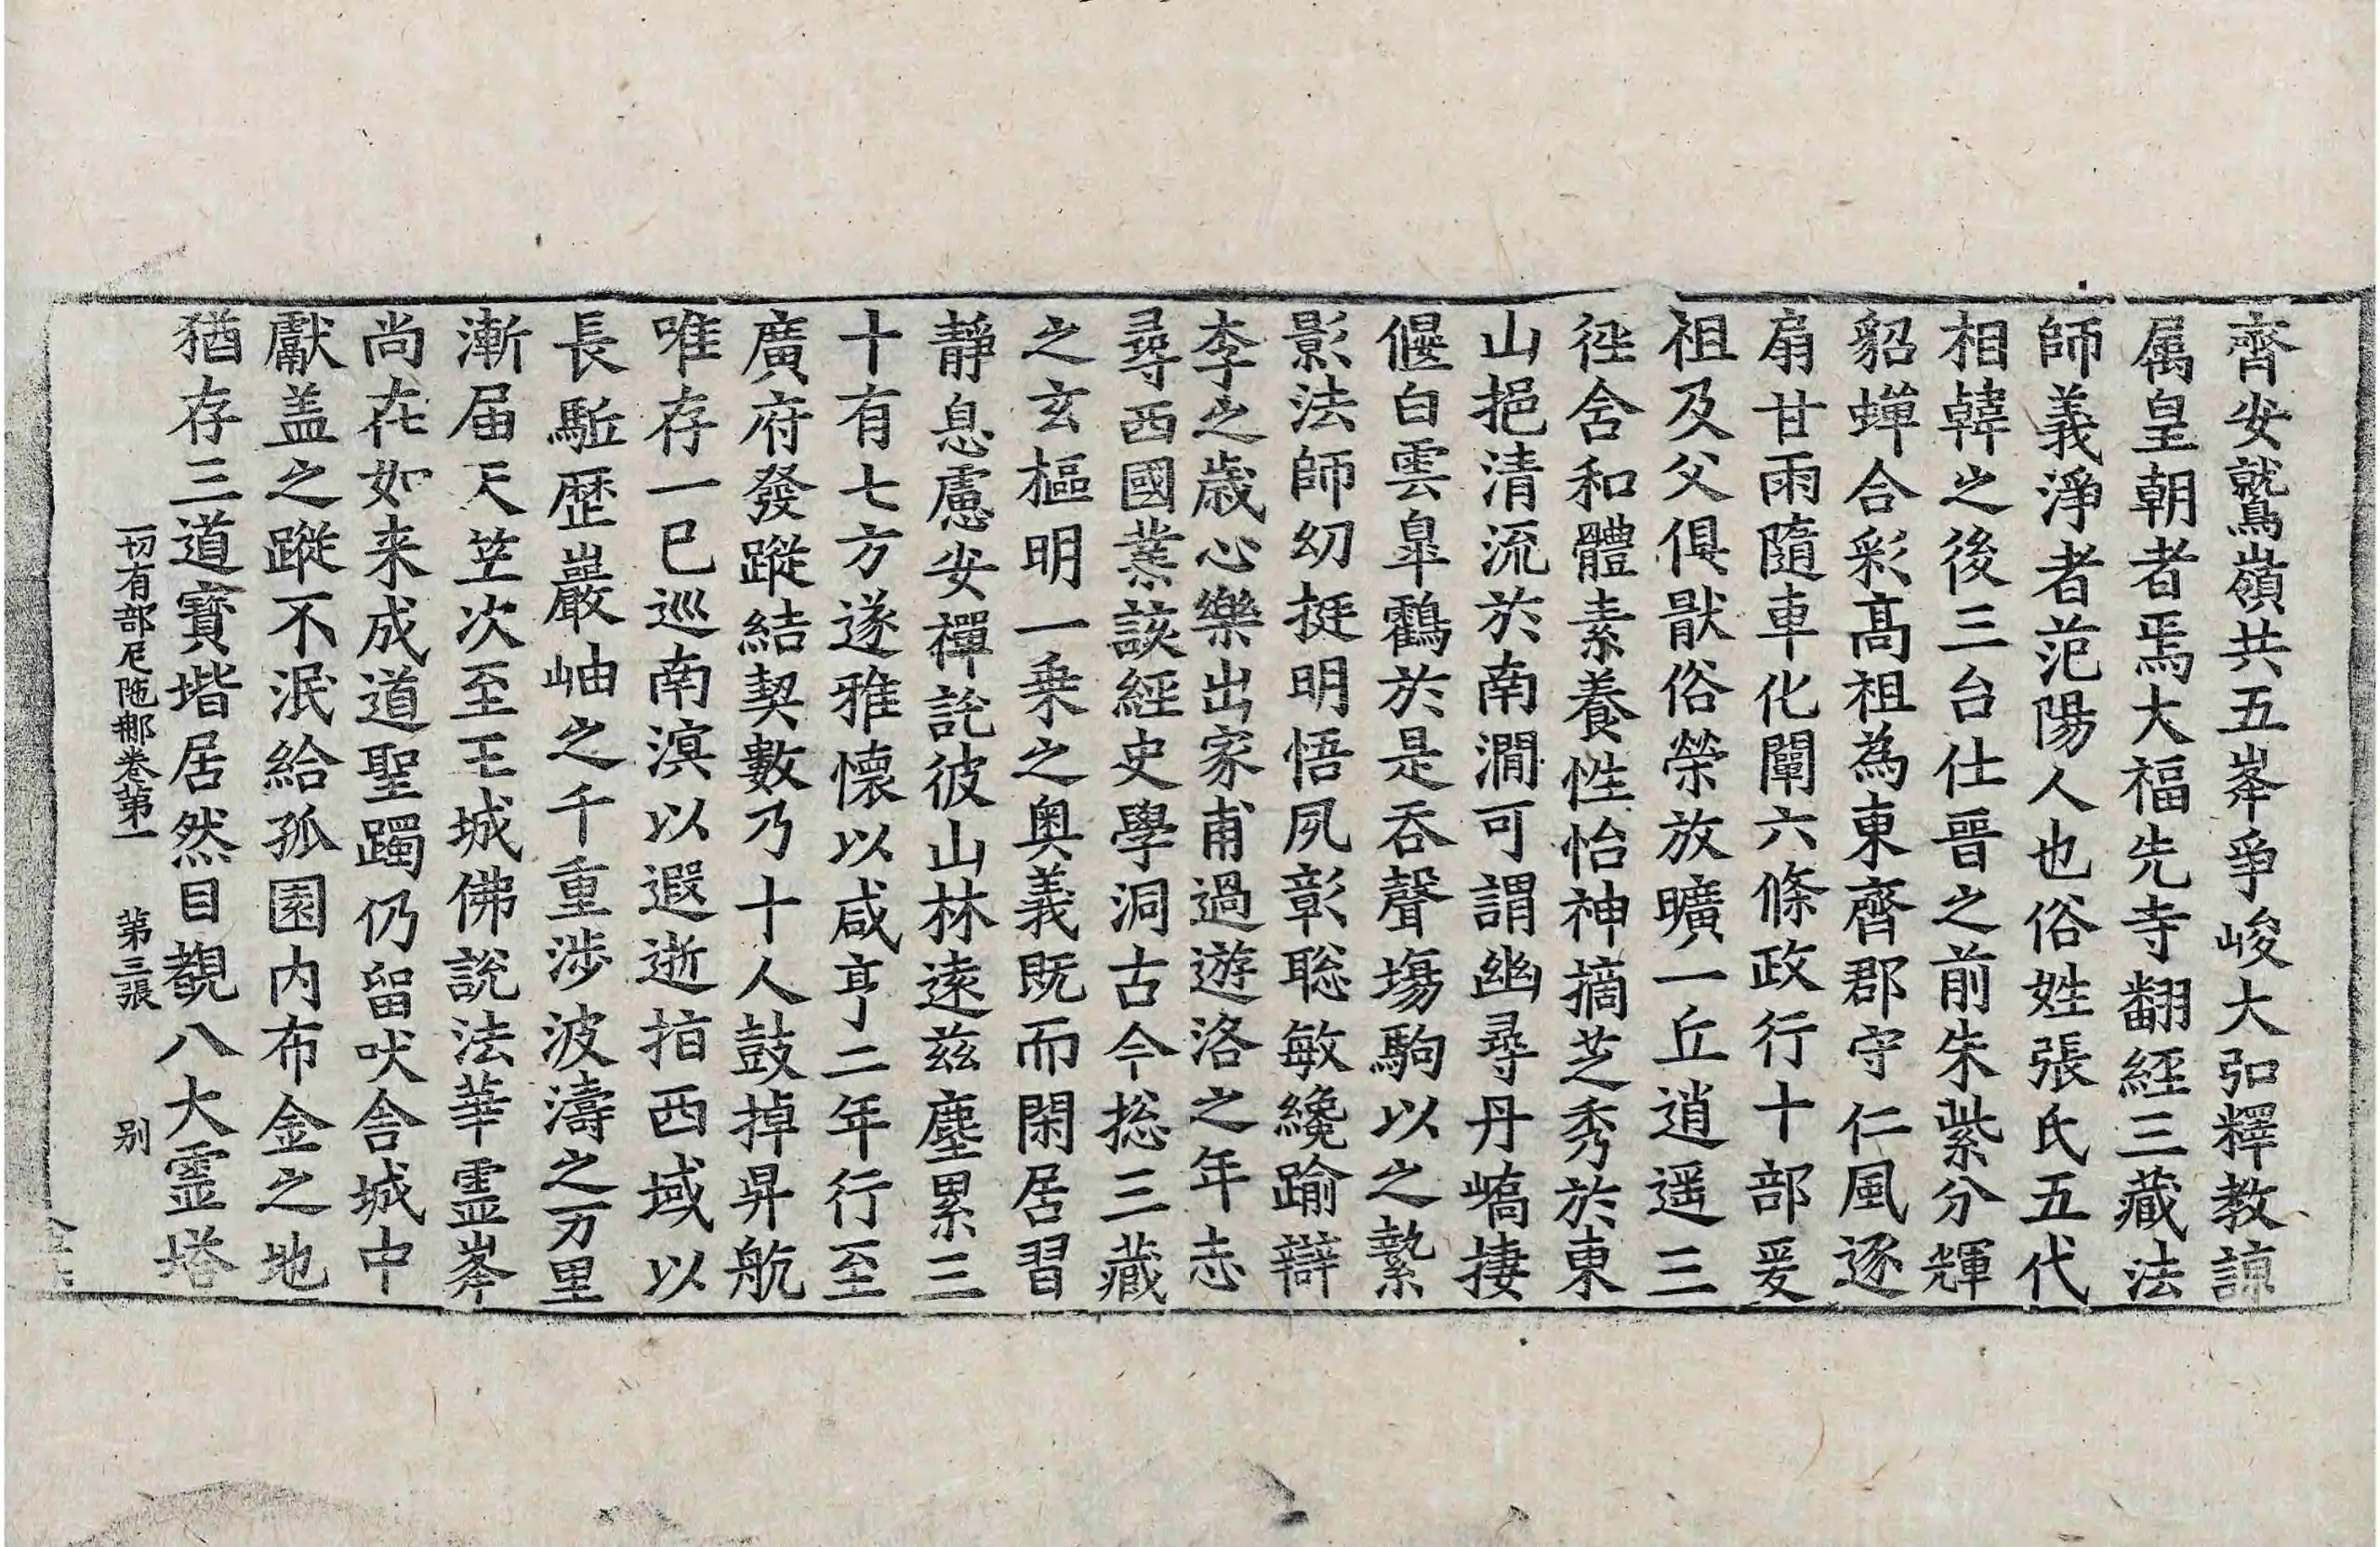 齊安鷲嶺共五峯爭峻大弘釋教諒
属皇朝者焉大福先寺翻經三藏法
師義淨者范陽人也俗姓張氏五代
相韓之後三台仕晉之前朱紫分輝
貂蟬合彩髙祖為東齊郡守仁風逐
扇甘雨隨車化闡六條政行十部爰
祖及父俱猒俗榮放曠一丘逍遥三
徑含和體素養性怡神摘芝秀於東
山挹清流於南澗可謂幽尋丹嶠捿
偃白雲臯鶴於是吞聲塲駒以之縶
影法師幼挺明悟夙彰聡敏纔踰辯
李之歳心樂出家甫過遊洛之年志
尋西國業該經史學洞古今総三藏
之玄樞明一乗之奥義既而閑居習
靜息慮安禪託彼山林遠茲塵累三
十有七方遂雅懐以咸亨二年行至
廣府發蹤結契數乃十人鼓掉昇航
唯存一巳巡南溟以遐逝指西域以
長駈歴巖岫之千重涉波濤之万里
漸届天笁次至王城佛說法華霊峯
尚在如来成道聖躅仍留吠舍城中
獻盖之蹤不泯給孤園内布金之地
猶存三道寳堦居然目覩八大霊塔
一切有部尼陁那卷第一 第三張 别